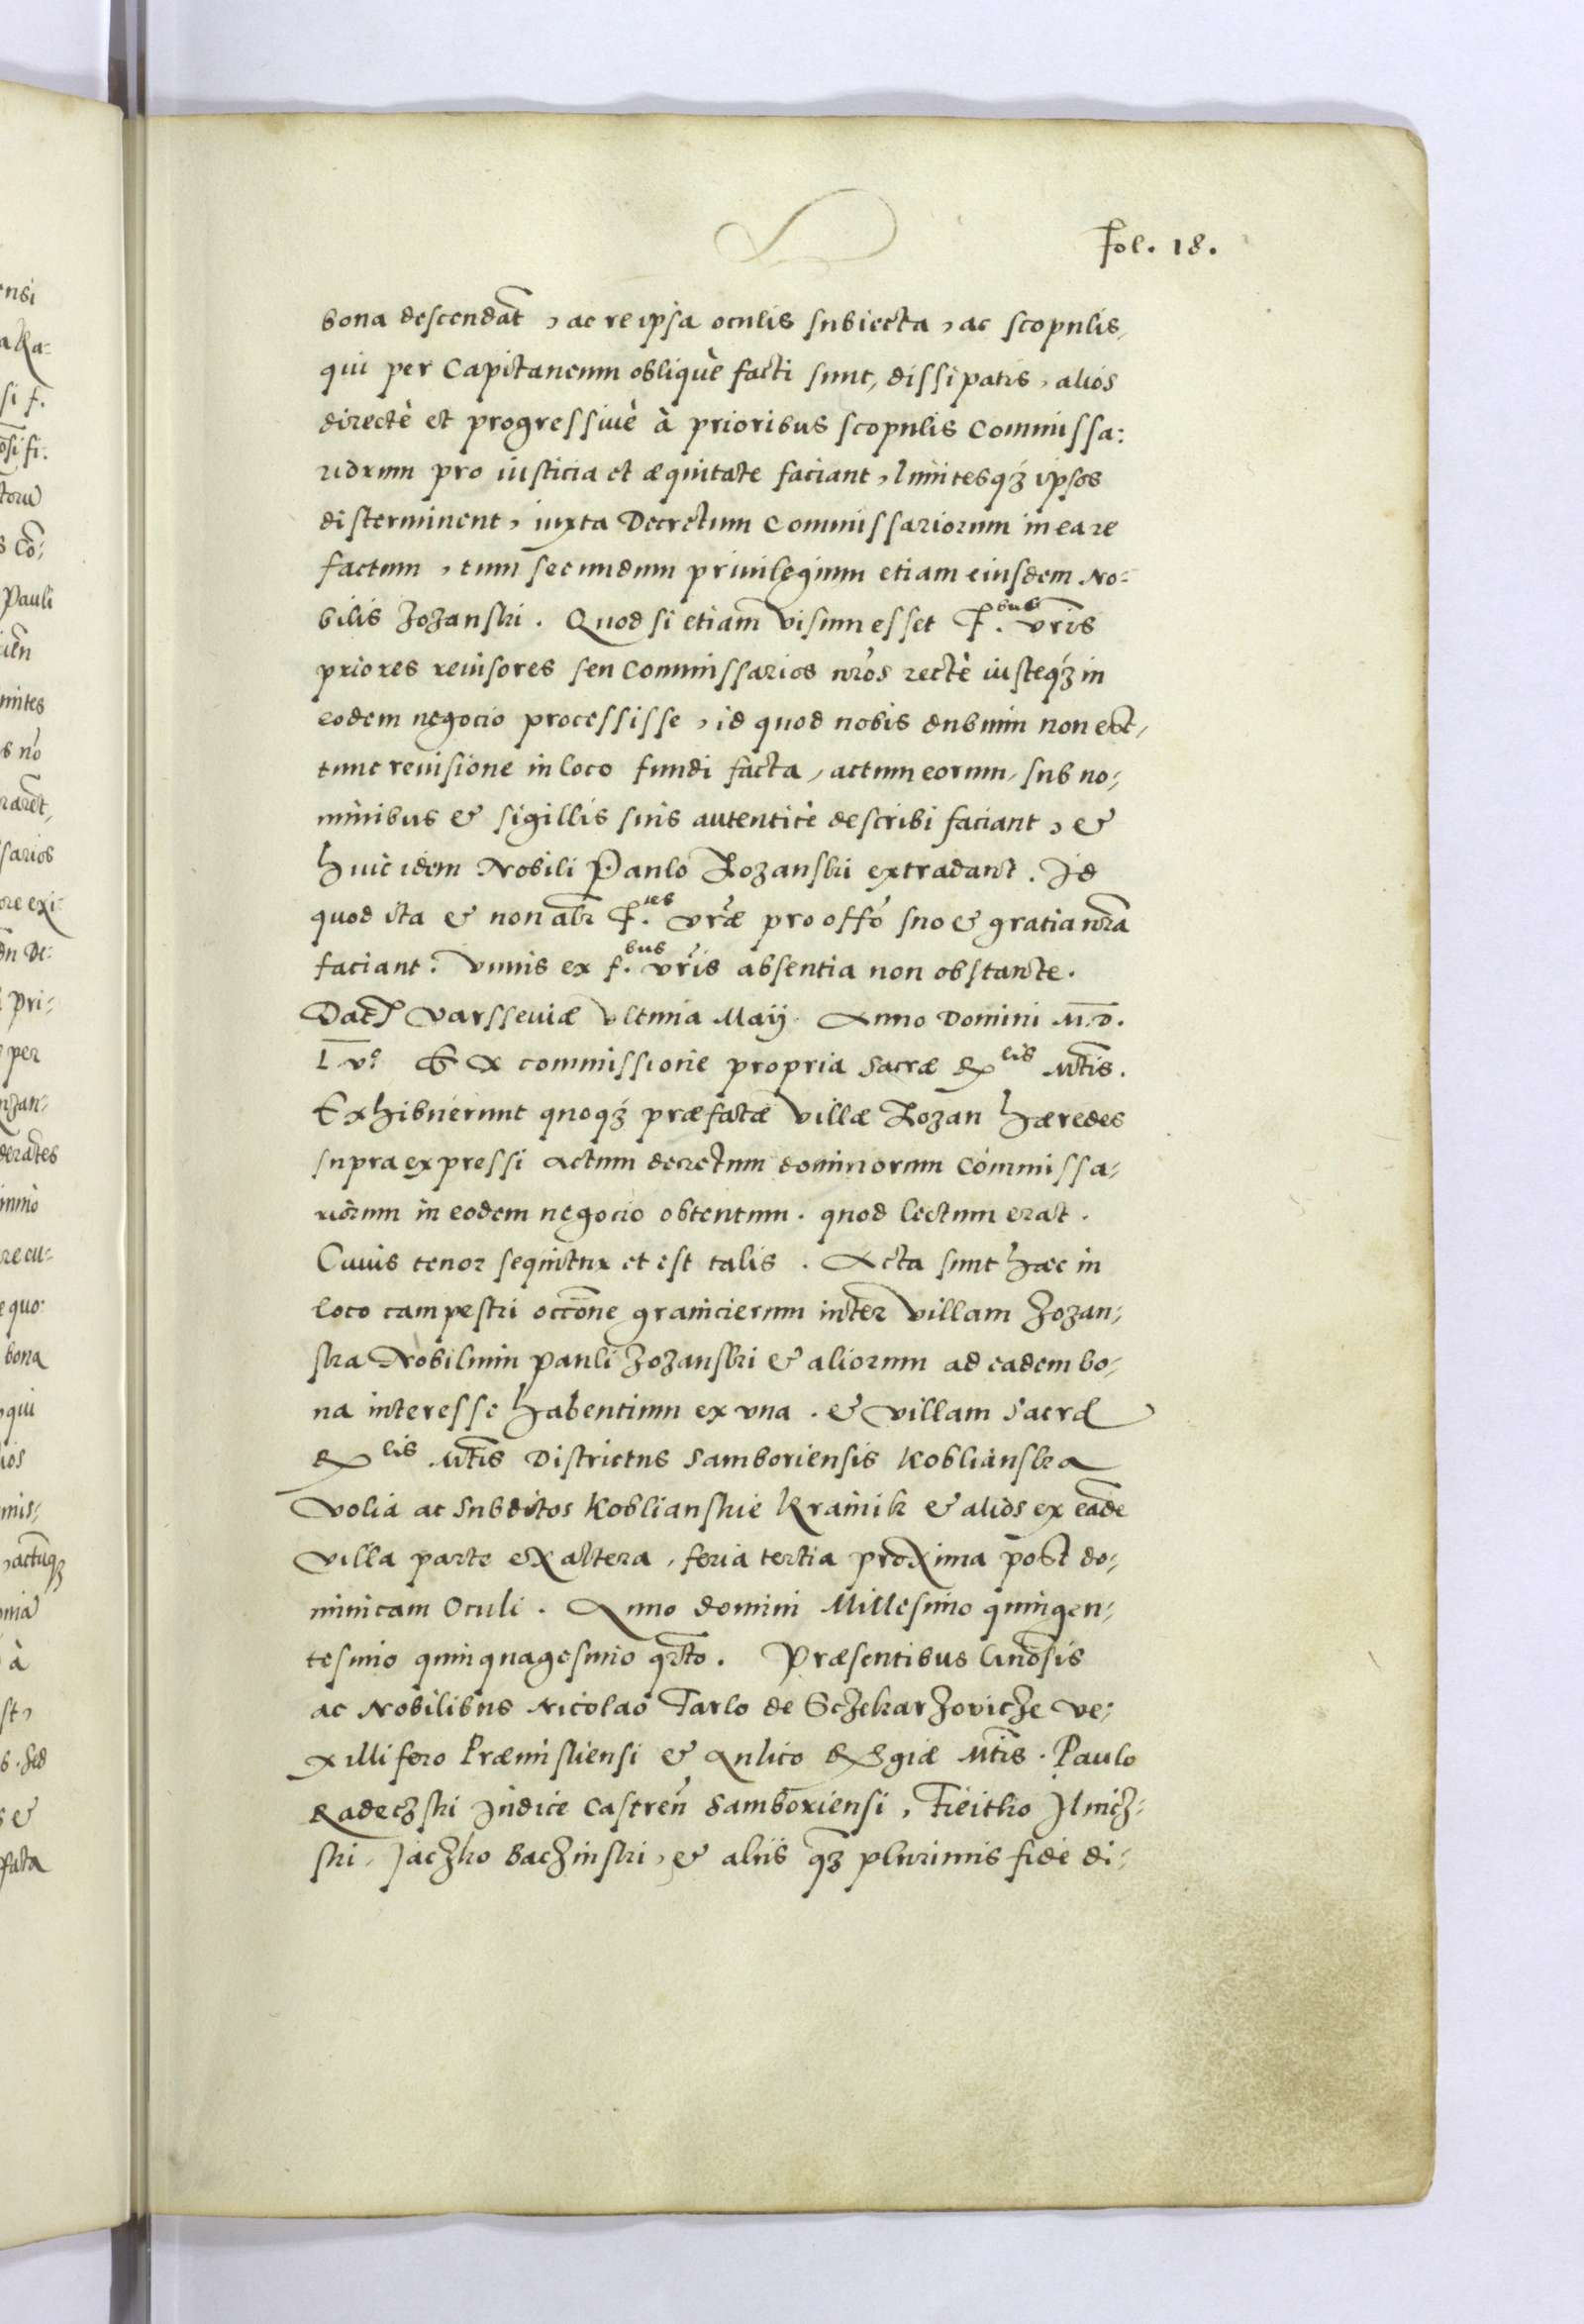 fol. 18.
bona descendāt, ac re ipsa oculis subiecta, ac scopulis,
qui per Capitaneum obliquè facti sunt, dissipatis, alios
directè et progressiuè à prioribus scopulis Commissa:
riorum pro iusticia et æquitate faciant, limitesqȝ ipsos
disterminent, iuxta Decretum Commissariorum in ea re
factum, tum secundum priuilegium etiam eiusdem No:
bilis Zozanski. Quod si etiam visum esset F.bus vr̄is
priores reuisores seu Commissarios nr̄os rectè iusteqȝ in
eodem negocio processisse, id quod nobis dubium non est,
tunc reuisione in loco fundi facta, actum eorum, sub no:
minibus & sigillis suis autenticè describi faciant, &
huic idem Nobili Paulo Rozanski extradant. Id
quod ita & non alr̄ F.tes vr̄æ pro offō suo & gratia nr̄a
faciant. Vnius ex f.bus vr̄is absentia non obstante.
Dat̄ Varsseuiæ vltima Maÿ. Anno Domini M.D.
L vᵗᵒ. Ex commissione propria Sacræ R.eis Mt̄is.
Exhibuerunt quoqȝ præfatæ villæ Rozan hæredes
supra expressi actum decretum dominorum Commissa:
riorum in eodem negocio obtentum. quod lectum erat.
Cuius tenor sequitur et est talis. Acta sunt hæc in
loco campestri occōne granicierum inter villam Zozan:
ska Nobilium Pauli Zozanski & aliorum ad eadem bo:
na interesse habentium ex vna. & villam Sacræ
R.eis Mt̄is Districtus Samboriensis Koblianska
Volia ac Subditos Koblianskie Krainik & alios ex eādē
villa parte ex altera, feria tertia proxima post do:
minicam Oculi. Anno domini Millesimo quingen:
tesimo quinquagesimo qr̄to. Præsentibus Gnōsis
ac Nobilibus Nicolao Tarlo de Sczekarzovicze ve:
xillifero Præmisliensi & Aulico Regiæ Mt̄is. Paulo
Radeczski Iudice Castreñ Samboriensi, Fieitko Ilnicz:
ski, Jaczko Baczinski, & aliis qȝ plurimis fide di: